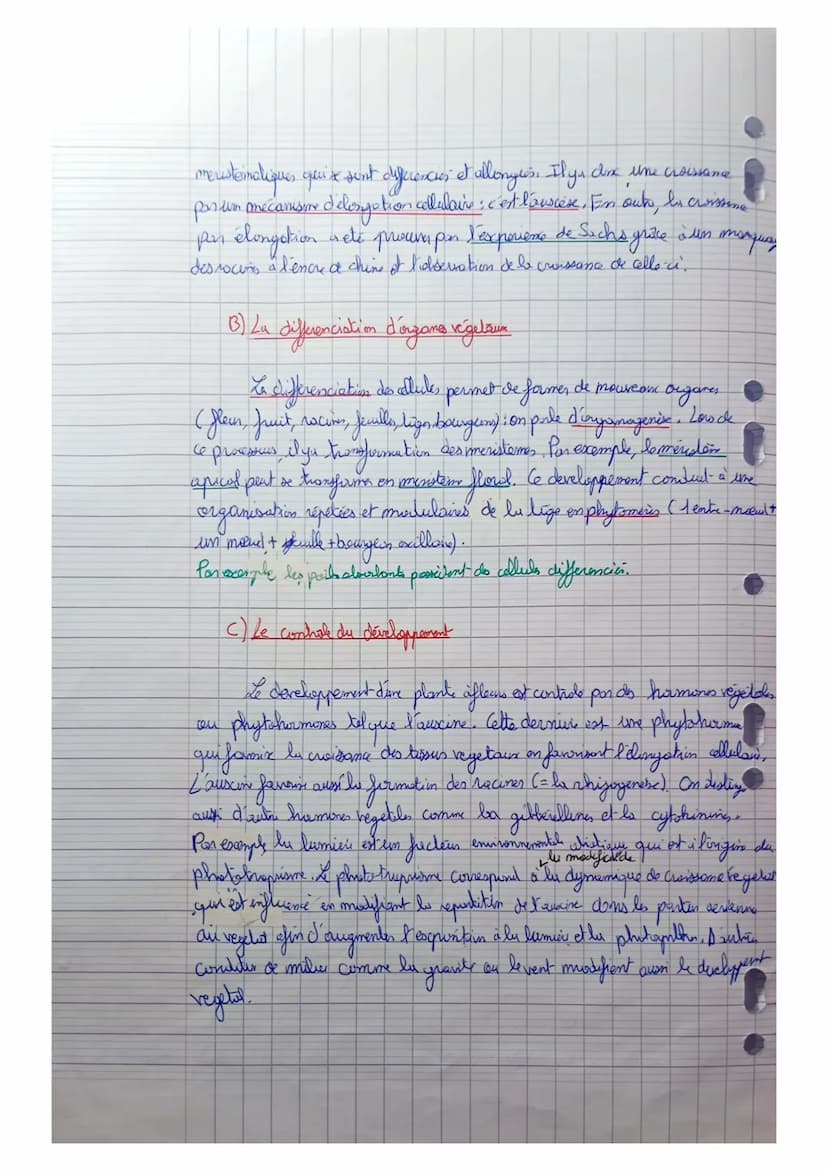 meristématiques qui se sont différenciés et allongés. Il y a donc une croissance
par un mécanisme d'élongation cellulaire : c'est l'auxèse. En outre, la croissance
par élongation a été prouvée par l'expérience de Sachs grâce à un marquage
des racines à l'encre de chine et l'observation de la croissance de celle-ci.
B) La différenciation d'organes végétaux
La différenciation des cellules permet de former de nouveaux organes
(fleur, fruit, racines, feuilles, tiges, bourgeons) : on parle d'organogenèse. Lors de
ce processus, il y a transformation des meristemes. Par exemple, le méristème
apical peut se transformer en meristem floral. Ce developpement conduit à une
organisation répétées et modulaires de la tige en phytomères (1 entre-noeud +
un noeud + feuille + bourgeon axillaire).
Par exemple les poils absorbants possèdent des cellules différenciés.
C) Le controle du développement
Le developpement d'une plante à fleurs est controlé par des hormones végétales
ou phytohormones tel que l'auxine. Cette derniere est une phytohormone
qui favorise la croissance des tissus vegetaux en favorisant l'élongation cellulaire.
L'auxine favorise aussi la formation des racines (= la rhizogenèse). On distingue
aussi d'autres hormones végétales comme la gibbérellines et la cytokinines.
Par exemple la lumière est un facteur environnemental qui est à l'origine du
la modif de
phototropisme. Le phototropisme correspond à la dynamique de croissance vegetal
qui est influencé en modifiant la repartition de l'auxine dans les parties aeriennes
du vegetal afin d'augmenter l'exposition à la lumière et la D'autres
condition de milieu comme la gravité ou le vent modifient aussi le developpement
vegetal.